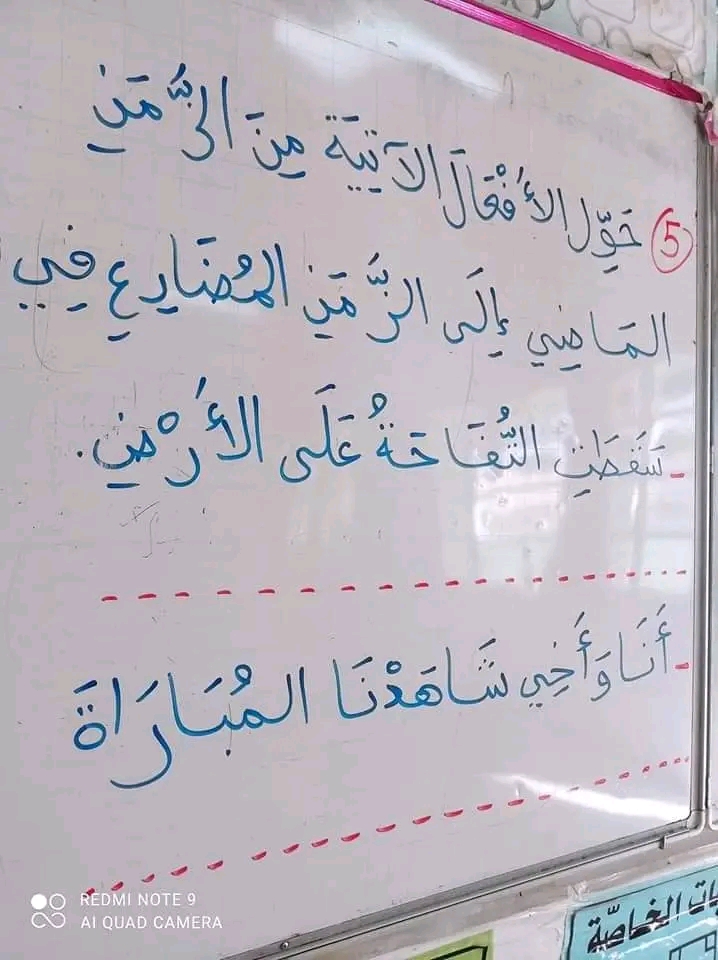 5 حَوِّل الأَفْعَالَ الآتِيَة مِنَ الزَّمَنِ
المَاضِي إِلَى الزَّمَنِ المُضَارِعِ فِي
- سَقَطَتِ التُّفَاحَةُ عَلَى الأَرْضِ.
- أَنَا وَأَخِي شَاهَدْنَا المُبَارَاةَ
REDMI NOTE 9
AI QUAD CAMERA
يات الخاصّة